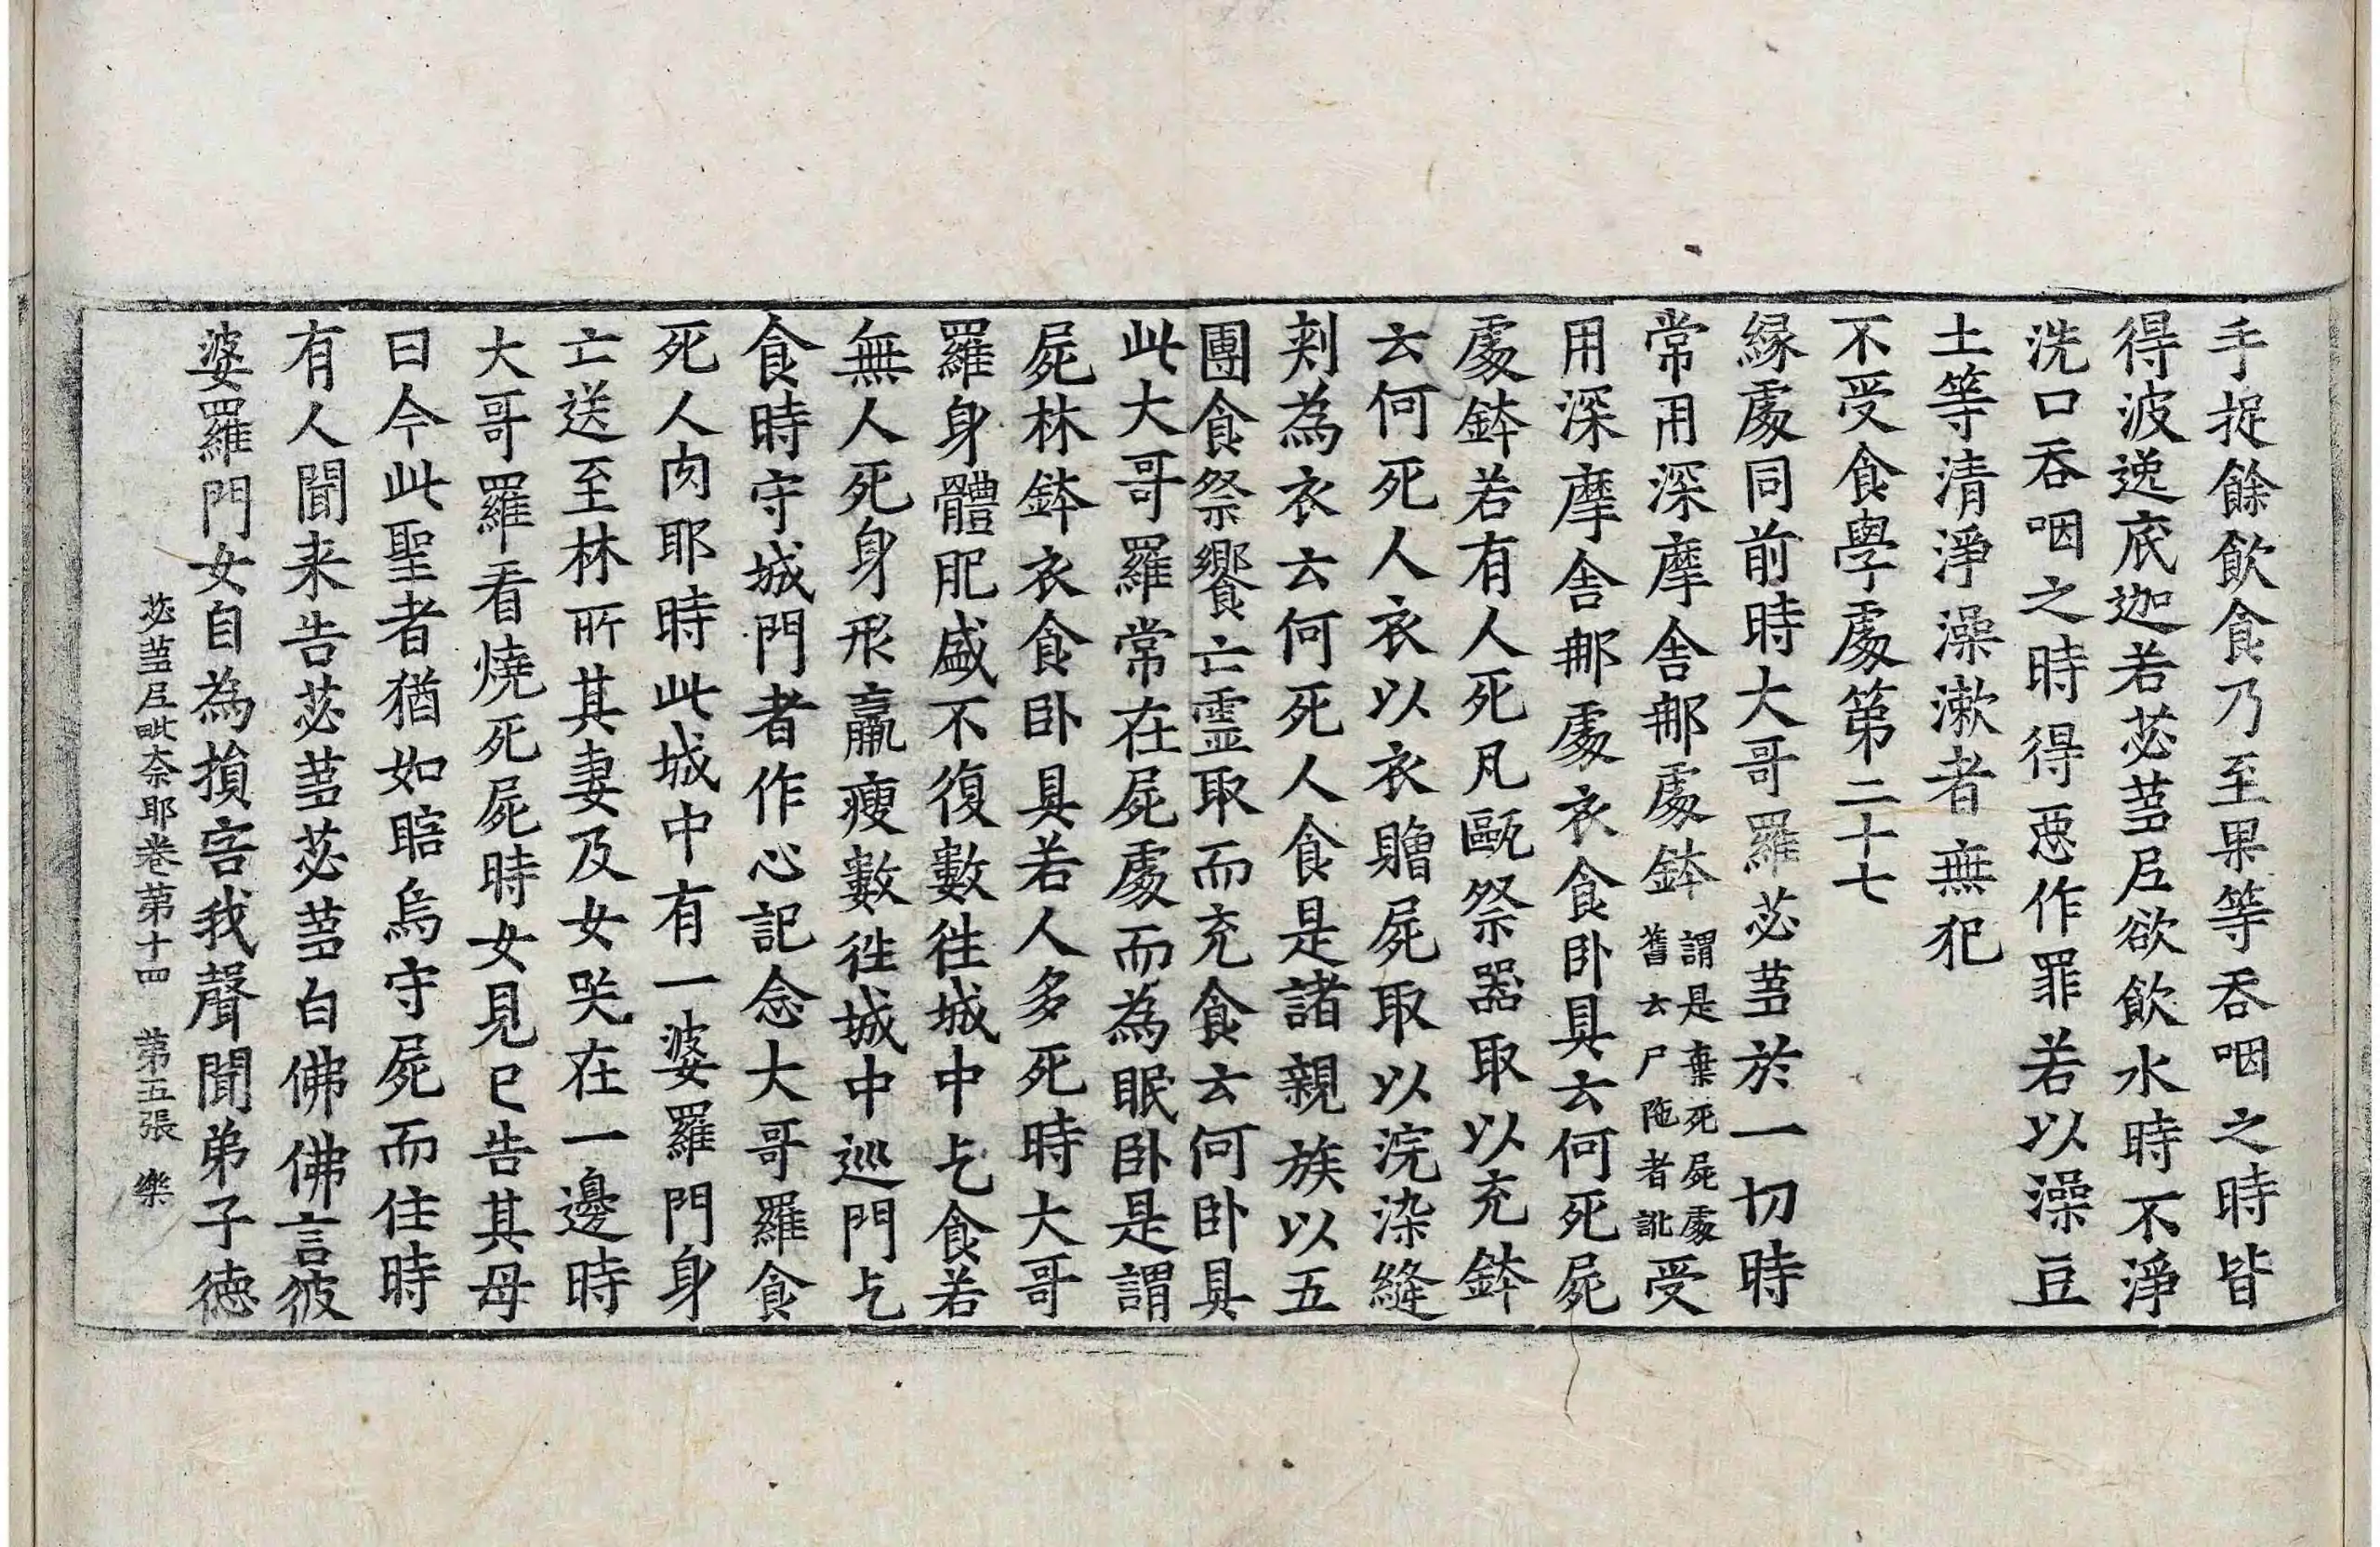 手捉餘飲食乃至果等吞咽之時皆
得波逸底迦若苾蒭尼欲飲水時不淨
洗口吞咽之時得惡作罪若以澡豆
土等清淨澡漱者無犯
不受食學處第二十七
緣處同前時大哥羅苾蒭於一切時
常用深摩舍那處鉢謂是棄死屍處舊云尸陁者訛受
用深摩舍那處衣食卧具云何死屍
處鉢若有人死凡甌祭器取以充鉢
云何死人衣以衣贈屍取以浣染縫
刾為衣云何死人食是諸親族以五
團食祭饗亡霊取而充食云何卧具
此大哥羅常在屍處而為眠卧是謂
屍林鉢衣食卧具若人多死時大哥
羅身體肥盛不復數徃城中乞食若
無人死身形羸瘦數徃城中巡門乞
食時守城門者作心記念大哥羅食
死人肉耶時此城中有一婆羅門身
亡送至林所其妻及女哭在一邊時
大哥羅看燒死屍時女見已告其母
曰今此聖者猶如瞎烏守屍而住時
有人聞来告苾蒭苾蒭白佛佛言彼
婆羅門女自為損害我聲聞弟子德
苾蒭尼毗奈耶卷第十四　第五張　樂